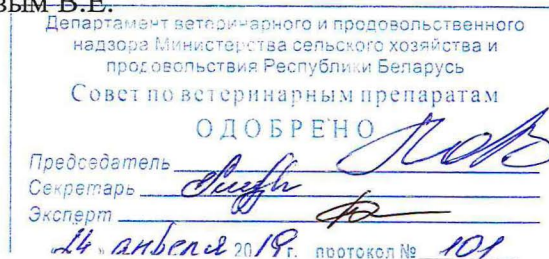 вым В.Е.
Департамент ветеринарного и продовольственного
надзора Министерства сельского хозяйства и
продовольствия Республики Беларусь
Совет по ветеринарным препаратам
ОДОБРЕНО
Председатель
Секретарь
Эксперт
"24" апреля 2019г. протокол № 101